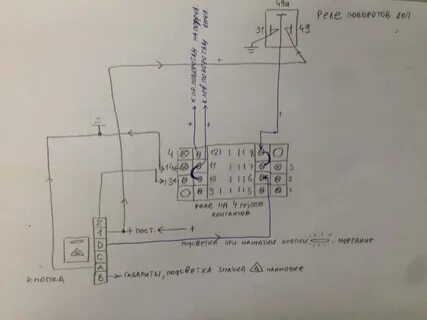 49а
Реле поворотов
31
49
к пр. поворотам
к лев. поворотам
+
+
+
4 12 8
14 11 7 3
13 10 6 2
9 5 1
реле на 4 группы
контактов
2
1
D
C
A
B
+ пост.
+
подсветка при нажатии кнопки
моргание
кнопка
габариты, подсветка значка
на кнопке